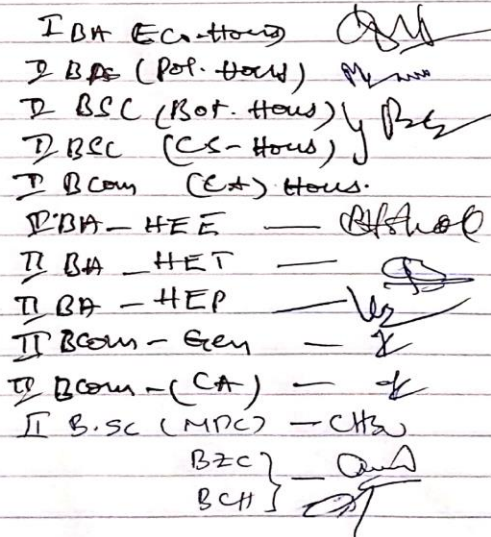 I BA Eco-Hons)
I BA (Pol. Hons)
I BSC (Bot. Hons)
I BSC (CS-Hons)
I BCom (CA) Hons.
II BA - HEE —
II BA - HET —
II BA - HEP —
II BCom - Gen —
II BCom - (CA) —
II B.SC (MPC) —
BZC
BCH } —